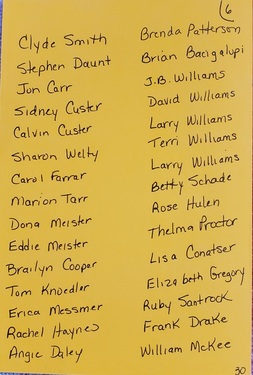 6
Clyde Smith
Stephen Daunt
Jon Carr
Sidney Custer
Calvin Custer
Sharon Welty
Carol Farrar
Marion Tarr
Dona Meister
Eddie Meister
Brailyn Cooper
Tom Knoedler
Erica Messmer
Rachel Haynes
Angie Daley
Brenda Patterson
Brian Bacigalupi
J.B. Williams
David Williams
Larry Williams
Terri Williams
Larry Williams
Betty Schade
Rose Hulen
Thelma Proctor
Lisa Conatser
Elizabeth Gregory
Ruby Santrock
Frank Drake
William McKee
30